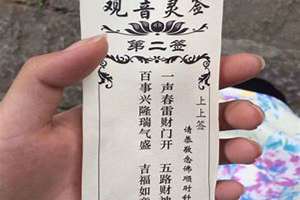 观音灵签
第二签
上上签
请恭敬念佛顺时针
一声春雷财门开 五路财神
百事兴隆瑞气盛 吉福如意